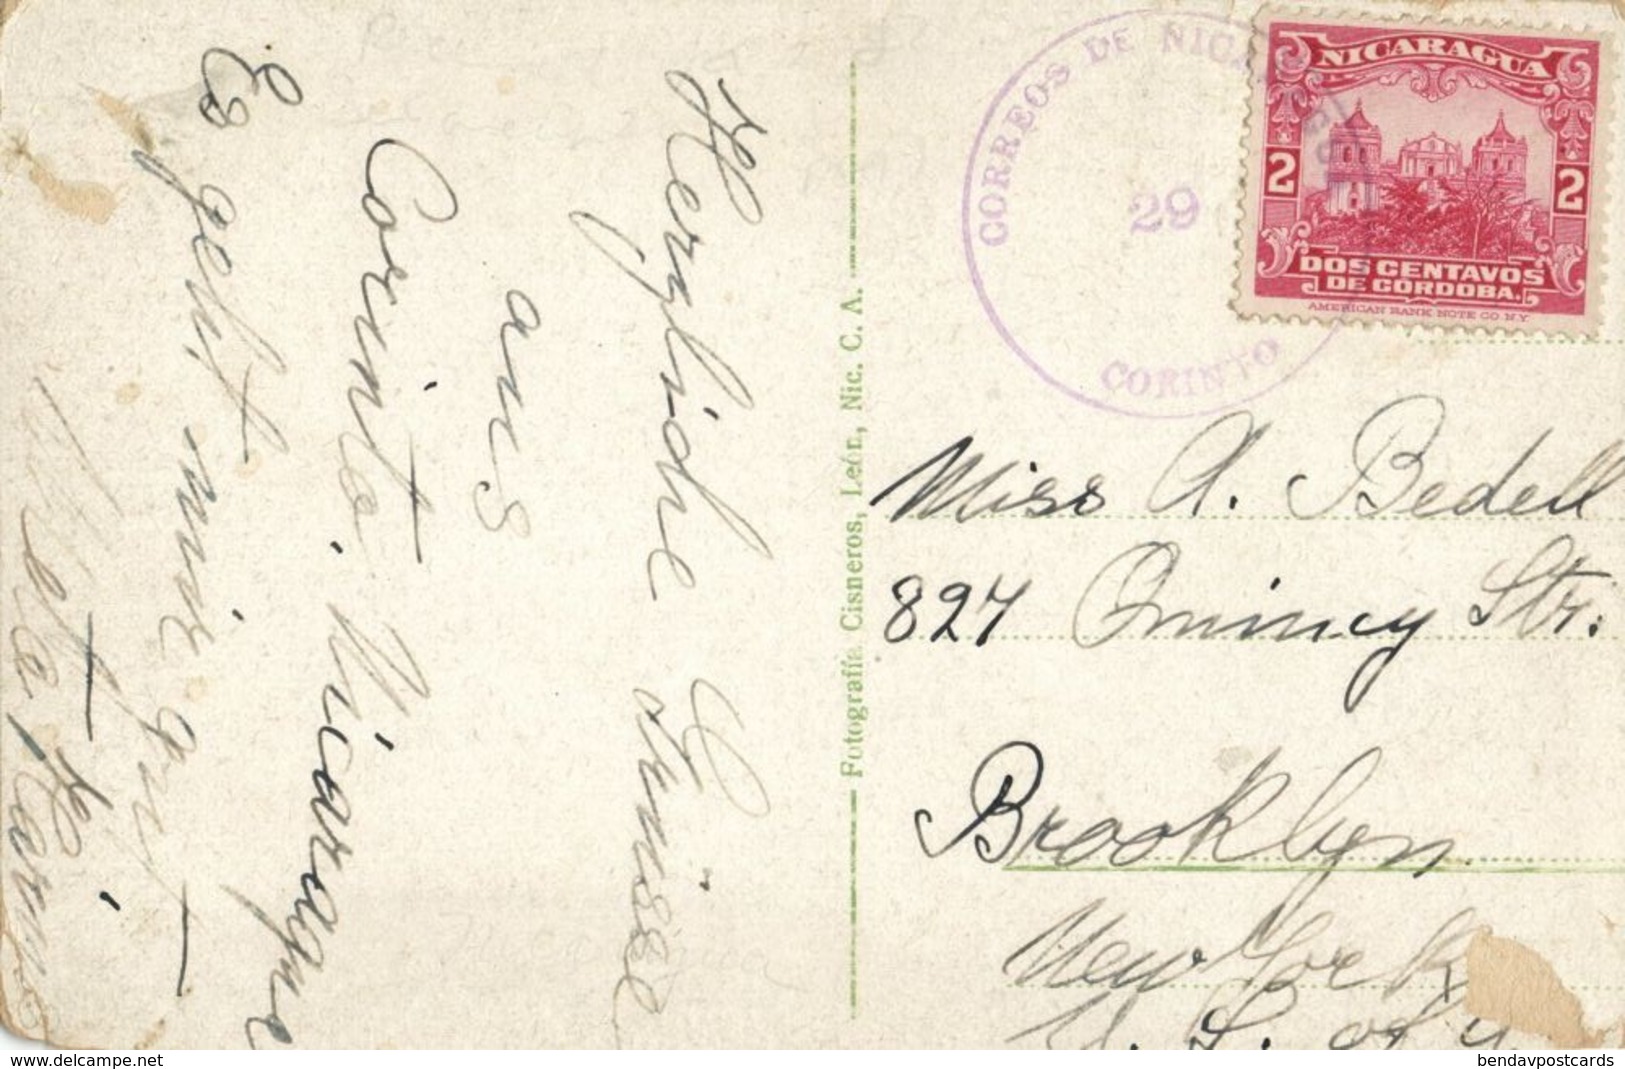 Herzliche Grüsse
aus
Corinto. Nicarague
Es geht mir gut
Fotografía Cisneros, León, Nic. C. A.
CORREOS DE NICA
29
CORINTO
NICARAGUA
2 2
DOS CENTAVOS
DE CORDOBA.
AMERICAN BANK NOTE CO. N.Y.
Miss A. Bedell
827 Quincy Str.
Brooklyn
New York
U. S. of
delcampe.net
bendavpostcards